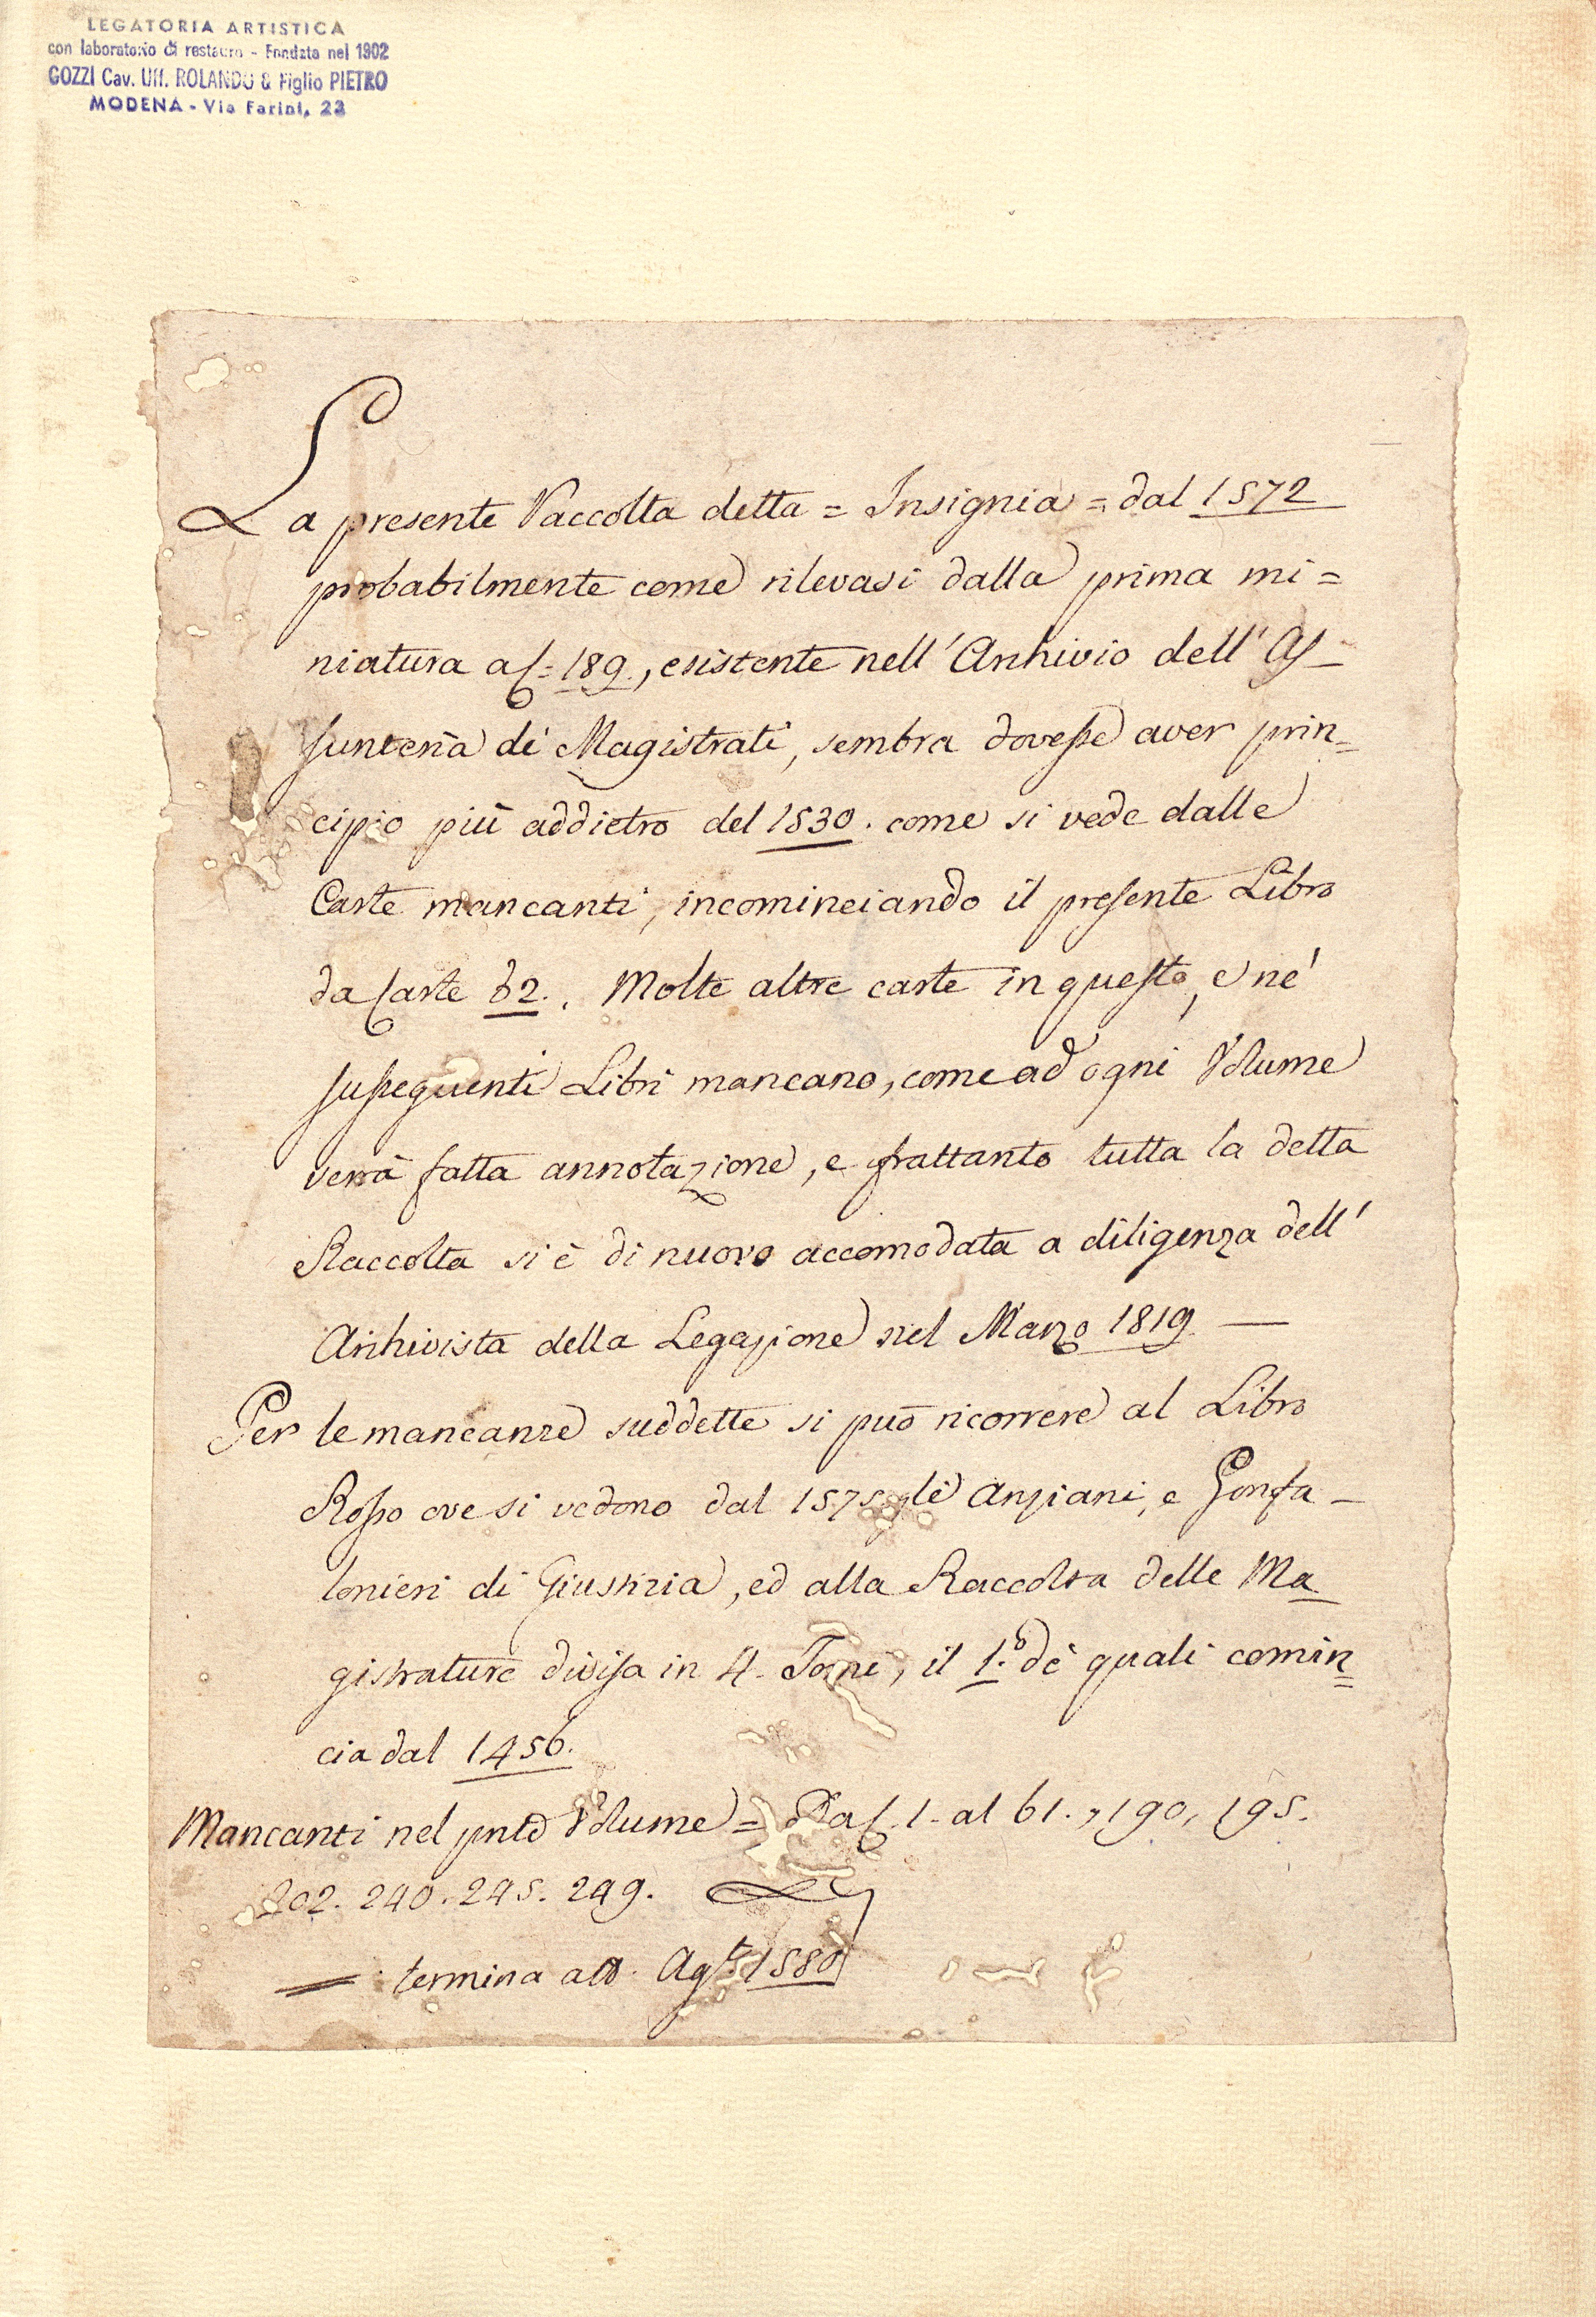 LEGATORIA ARTISTICA
con laboratorio di restauro - Fondata nel 1902
GOZZI Cav. Uff. ROLANDO & Figlio PIETRO
MODENA - Via Farini, 23
La presente Raccolta detta = Insignia = dal 1572
probabilmente come rilevasi dalla prima mi=
niatura a c. 189., esistente nell' Archivio dell' As-
sunteria de' Magistrati, sembra dovesse aver prin=
cipio più addietro del 1530. come si vede dalle
Carte mancanti, incominciando il presente Libro
da Carte 62.. Molte altre carte in questo, e ne'
susseguenti Libri mancano, come ad ogni Volume
verrà fatta annotazione, e frattanto tutta la detta
Raccolta si è di nuovo accomodata a diligenza dell'
Archivista della Legazione nel Marzo 1819 —
Per le mancanze suddette si può ricorrere al Libro
Rosso ove si vedono dal 1575 gli Anziani, e Gonfa-
lonieri di Giustizia, ed alla Raccolta delle Ma
gistrature divisa in 4. Tomi, il 1.º de' quali comin=
cia dal 1456.
Mancanti nel pntẽ Volume = Da C. 1. al 61., 190, 195.
202. 240. 245. 249.
= termina Agto. 1580